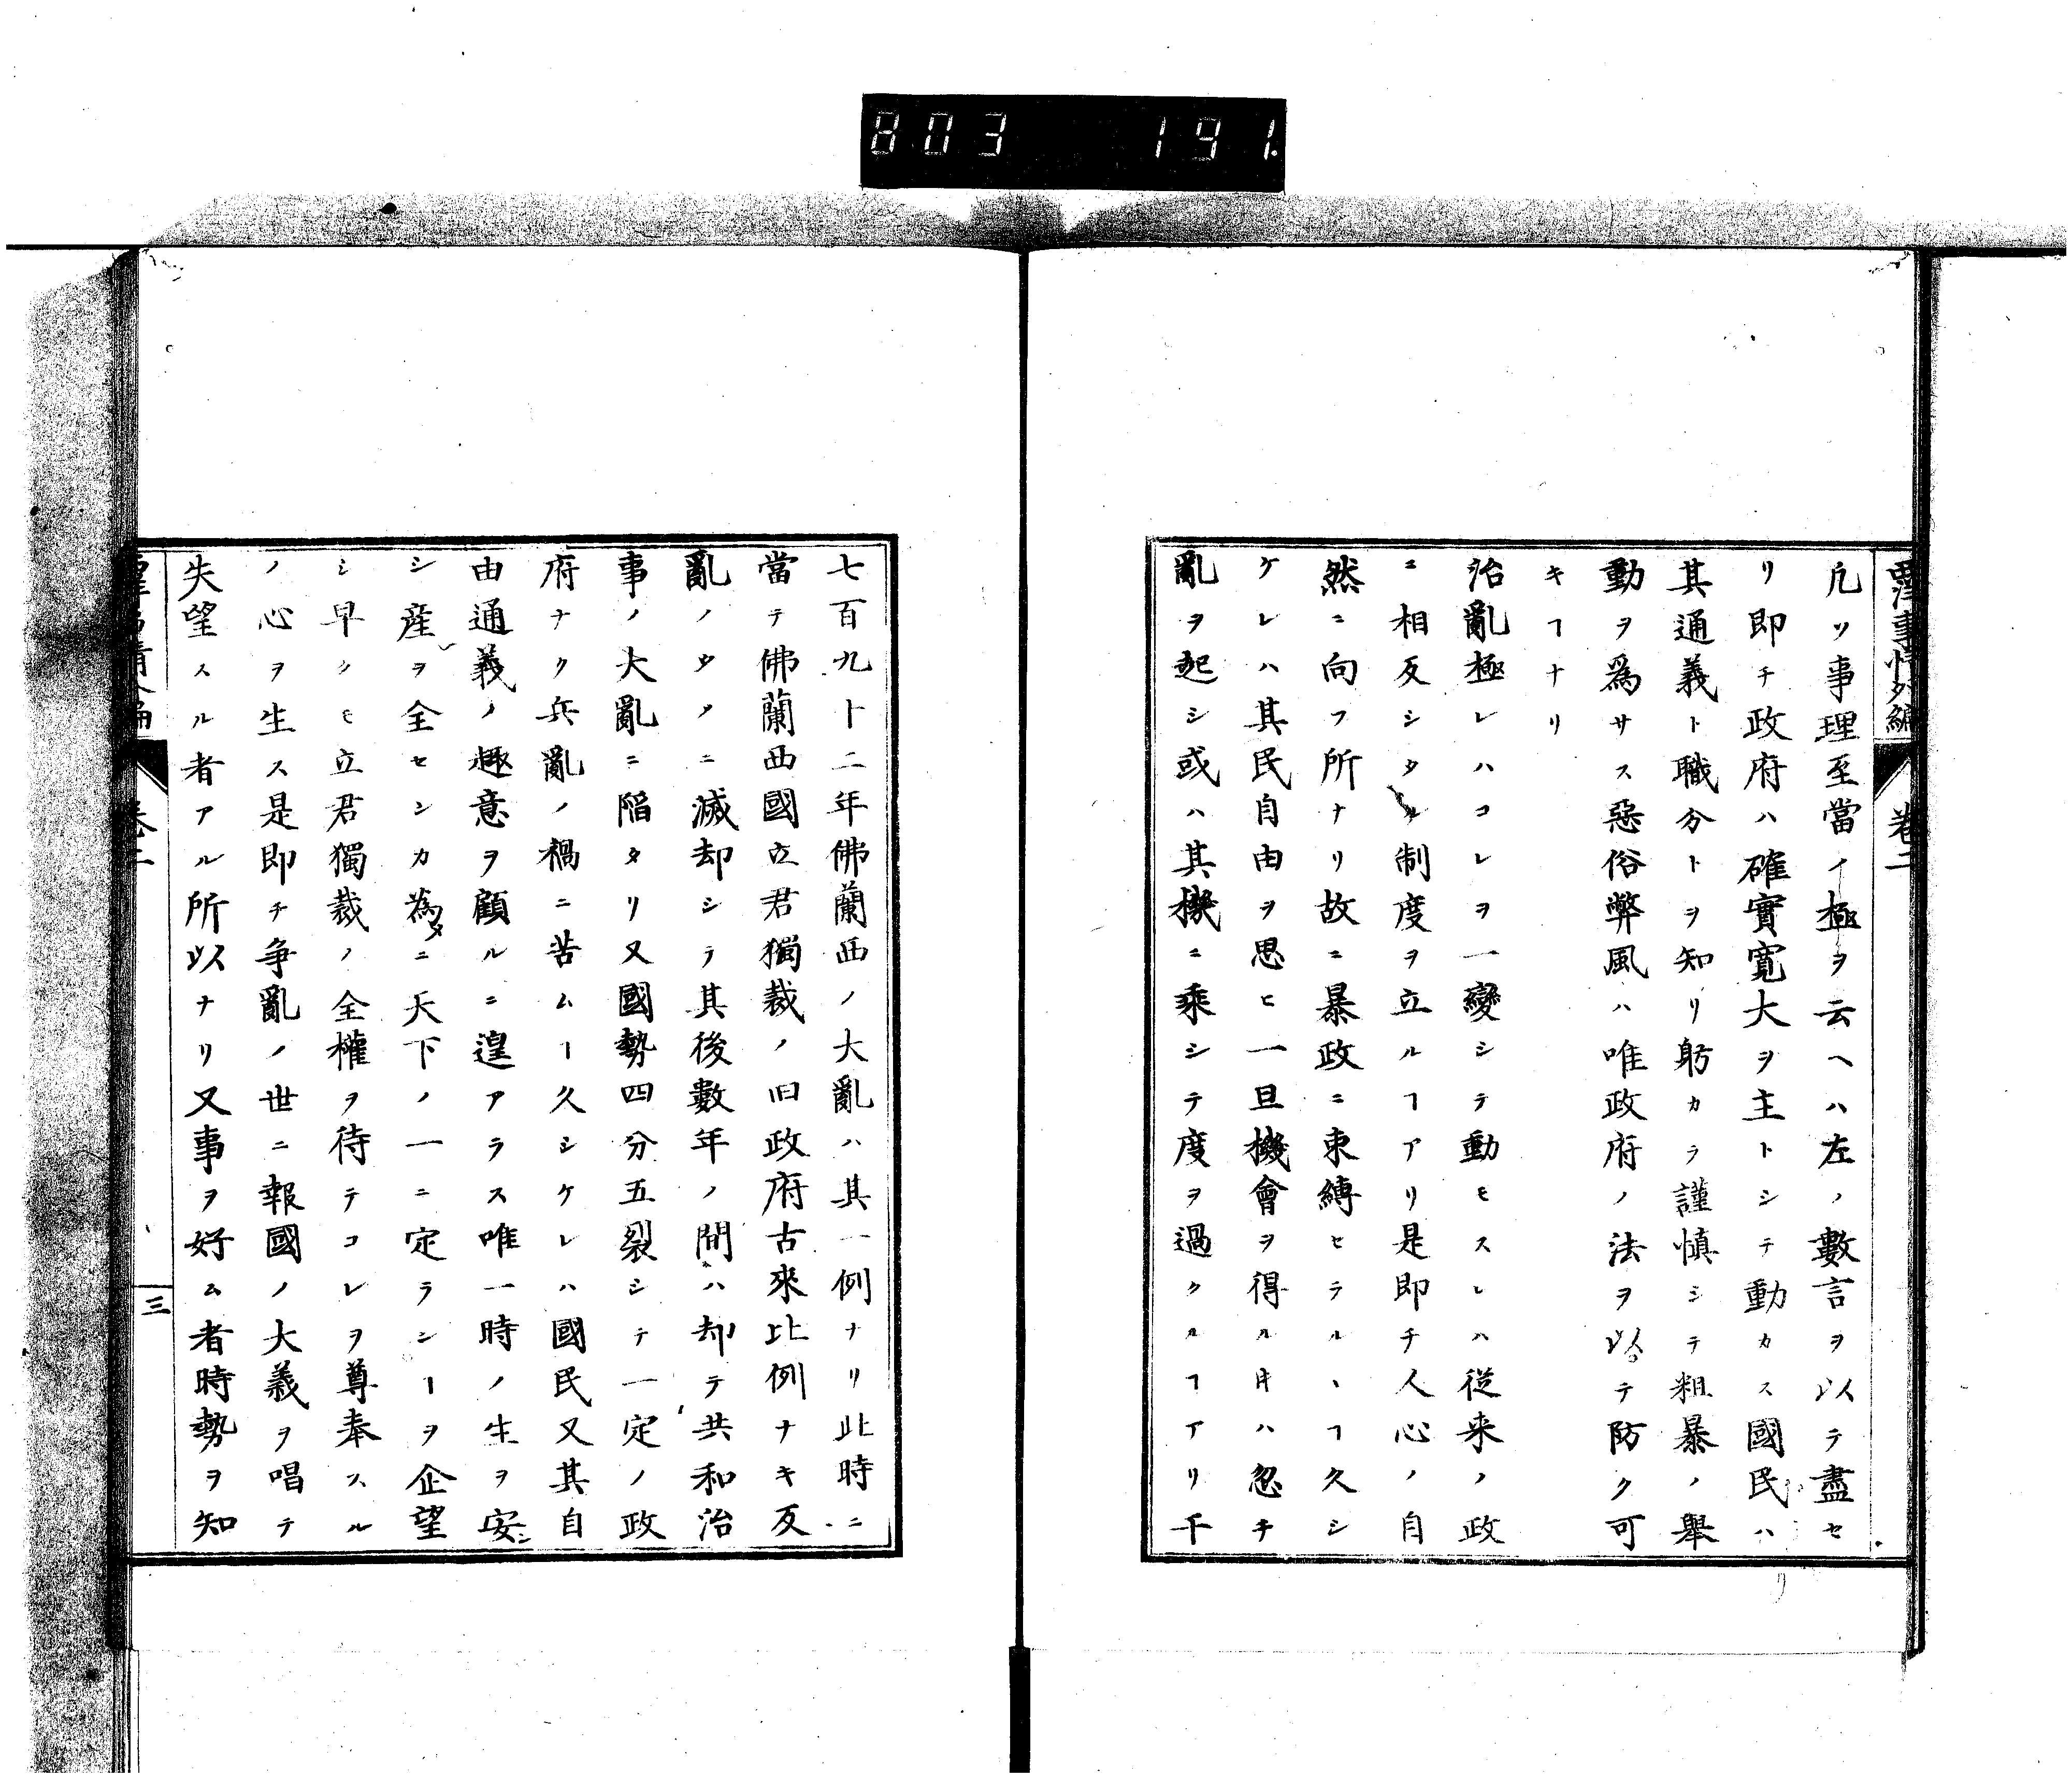 803 191
西洋事情外編 卷二
凡ソ事理至當ノ極ヲ云ヘハ左ノ數言ヲ以テ盡セ
リ即チ政府ハ確實寛大ヲ主トシテ動カス國民ハ
其通義ト職分トヲ知リ躬カラ謹慎シテ粗暴ノ舉
動ヲ為サス惡俗弊風ハ唯政府ノ法ヲ以テ防ク可
キヿナリ
治亂極レハコレヲ一變シテ動モスレハ従来ノ政
ニ相反シタル制度ヲ立ルヿアリ是即チ人心ノ自
然ニ向フ所ナリ故ニ暴政ニ束縛セラルヽヿ久シ
ケレハ其民自由ヲ思ヒ一旦機會ヲ得ル𪜈ハ忽チ
亂ヲ起シ或ハ其機ニ乘シテ度ヲ過クルヿアリ千
七百九十二年佛蘭西ノ大亂ハ其一例ナリ此時ニ
當テ佛蘭西國立君獨裁ノ旧政府古來比例ナキ反
亂ノタメニ滅却シテ其後數年ノ間ハ却テ共和治
事ノ大亂ニ陷タリ又國勢四分五裂シテ一定ノ政
府ナク兵亂ノ禍ニ苦ムヿ久シケレハ國民又其自
由通義ノ趣意ヲ顧ルニ遑アラス唯一時ノ生ヲ安シ
シ産ヲ全センカ為メニ天下ノ一ニ定ランヿヲ企望
シ早クモ立君獨裁ノ全權ヲ待テコレヲ尊奉スル
ノ心ヲ生ス是即チ争亂ノ世ニ報國ノ大義ヲ唱テ
失望スル者アル所以ナリ又事ヲ好ム者時勢ヲ知
卷二
三